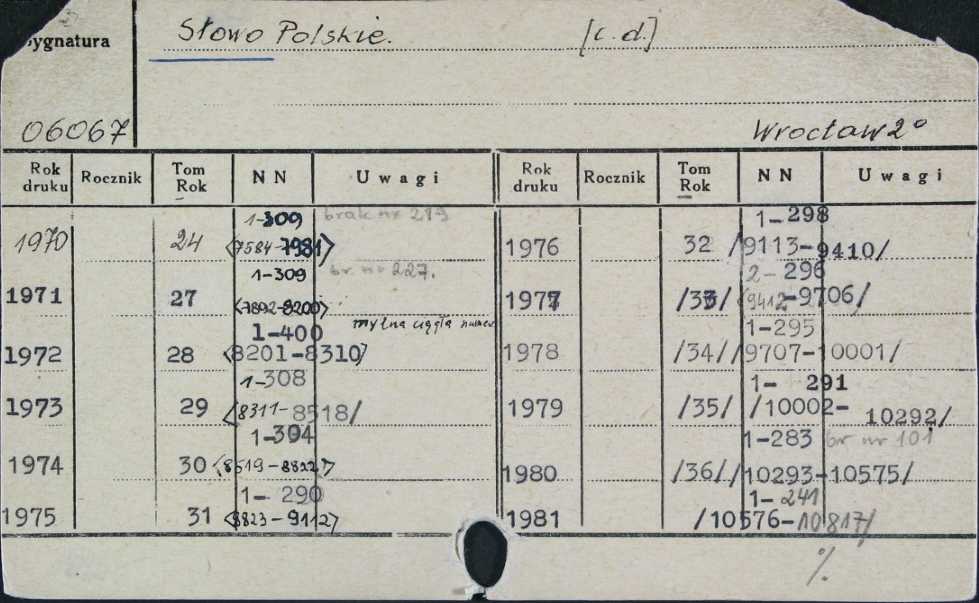 Sygnatura Słowo Polskie. [c.d.]
06067 Wrocław 2°
Rok druku Rocznik Tom Rok NN Uwagi Rok druku Rocznik Tom Rok NN Uwagi
1-309 brak nr 219
1970 24 <7584-7981>
1-309 br. nr 227.
1971 27 <7892-8200>
1-400 mylna ciągła numer
1972 28 <8201-8310>
1-308
1973 29 <8311-8518/
1-304
1974 30 <8519-8822>
1-290
1975 31 <8823-9112>
1-298
1976 32 /9113-9410/
2-296
1977 /33/ <9412-9706/
1-295
1978 /34/ /9707-10001/
1-291
1979 /35/ /10002-10292/
1-283 br nr 101
1980 /36/ /10293-10575/
1-241
1981 /10576-10817/
%